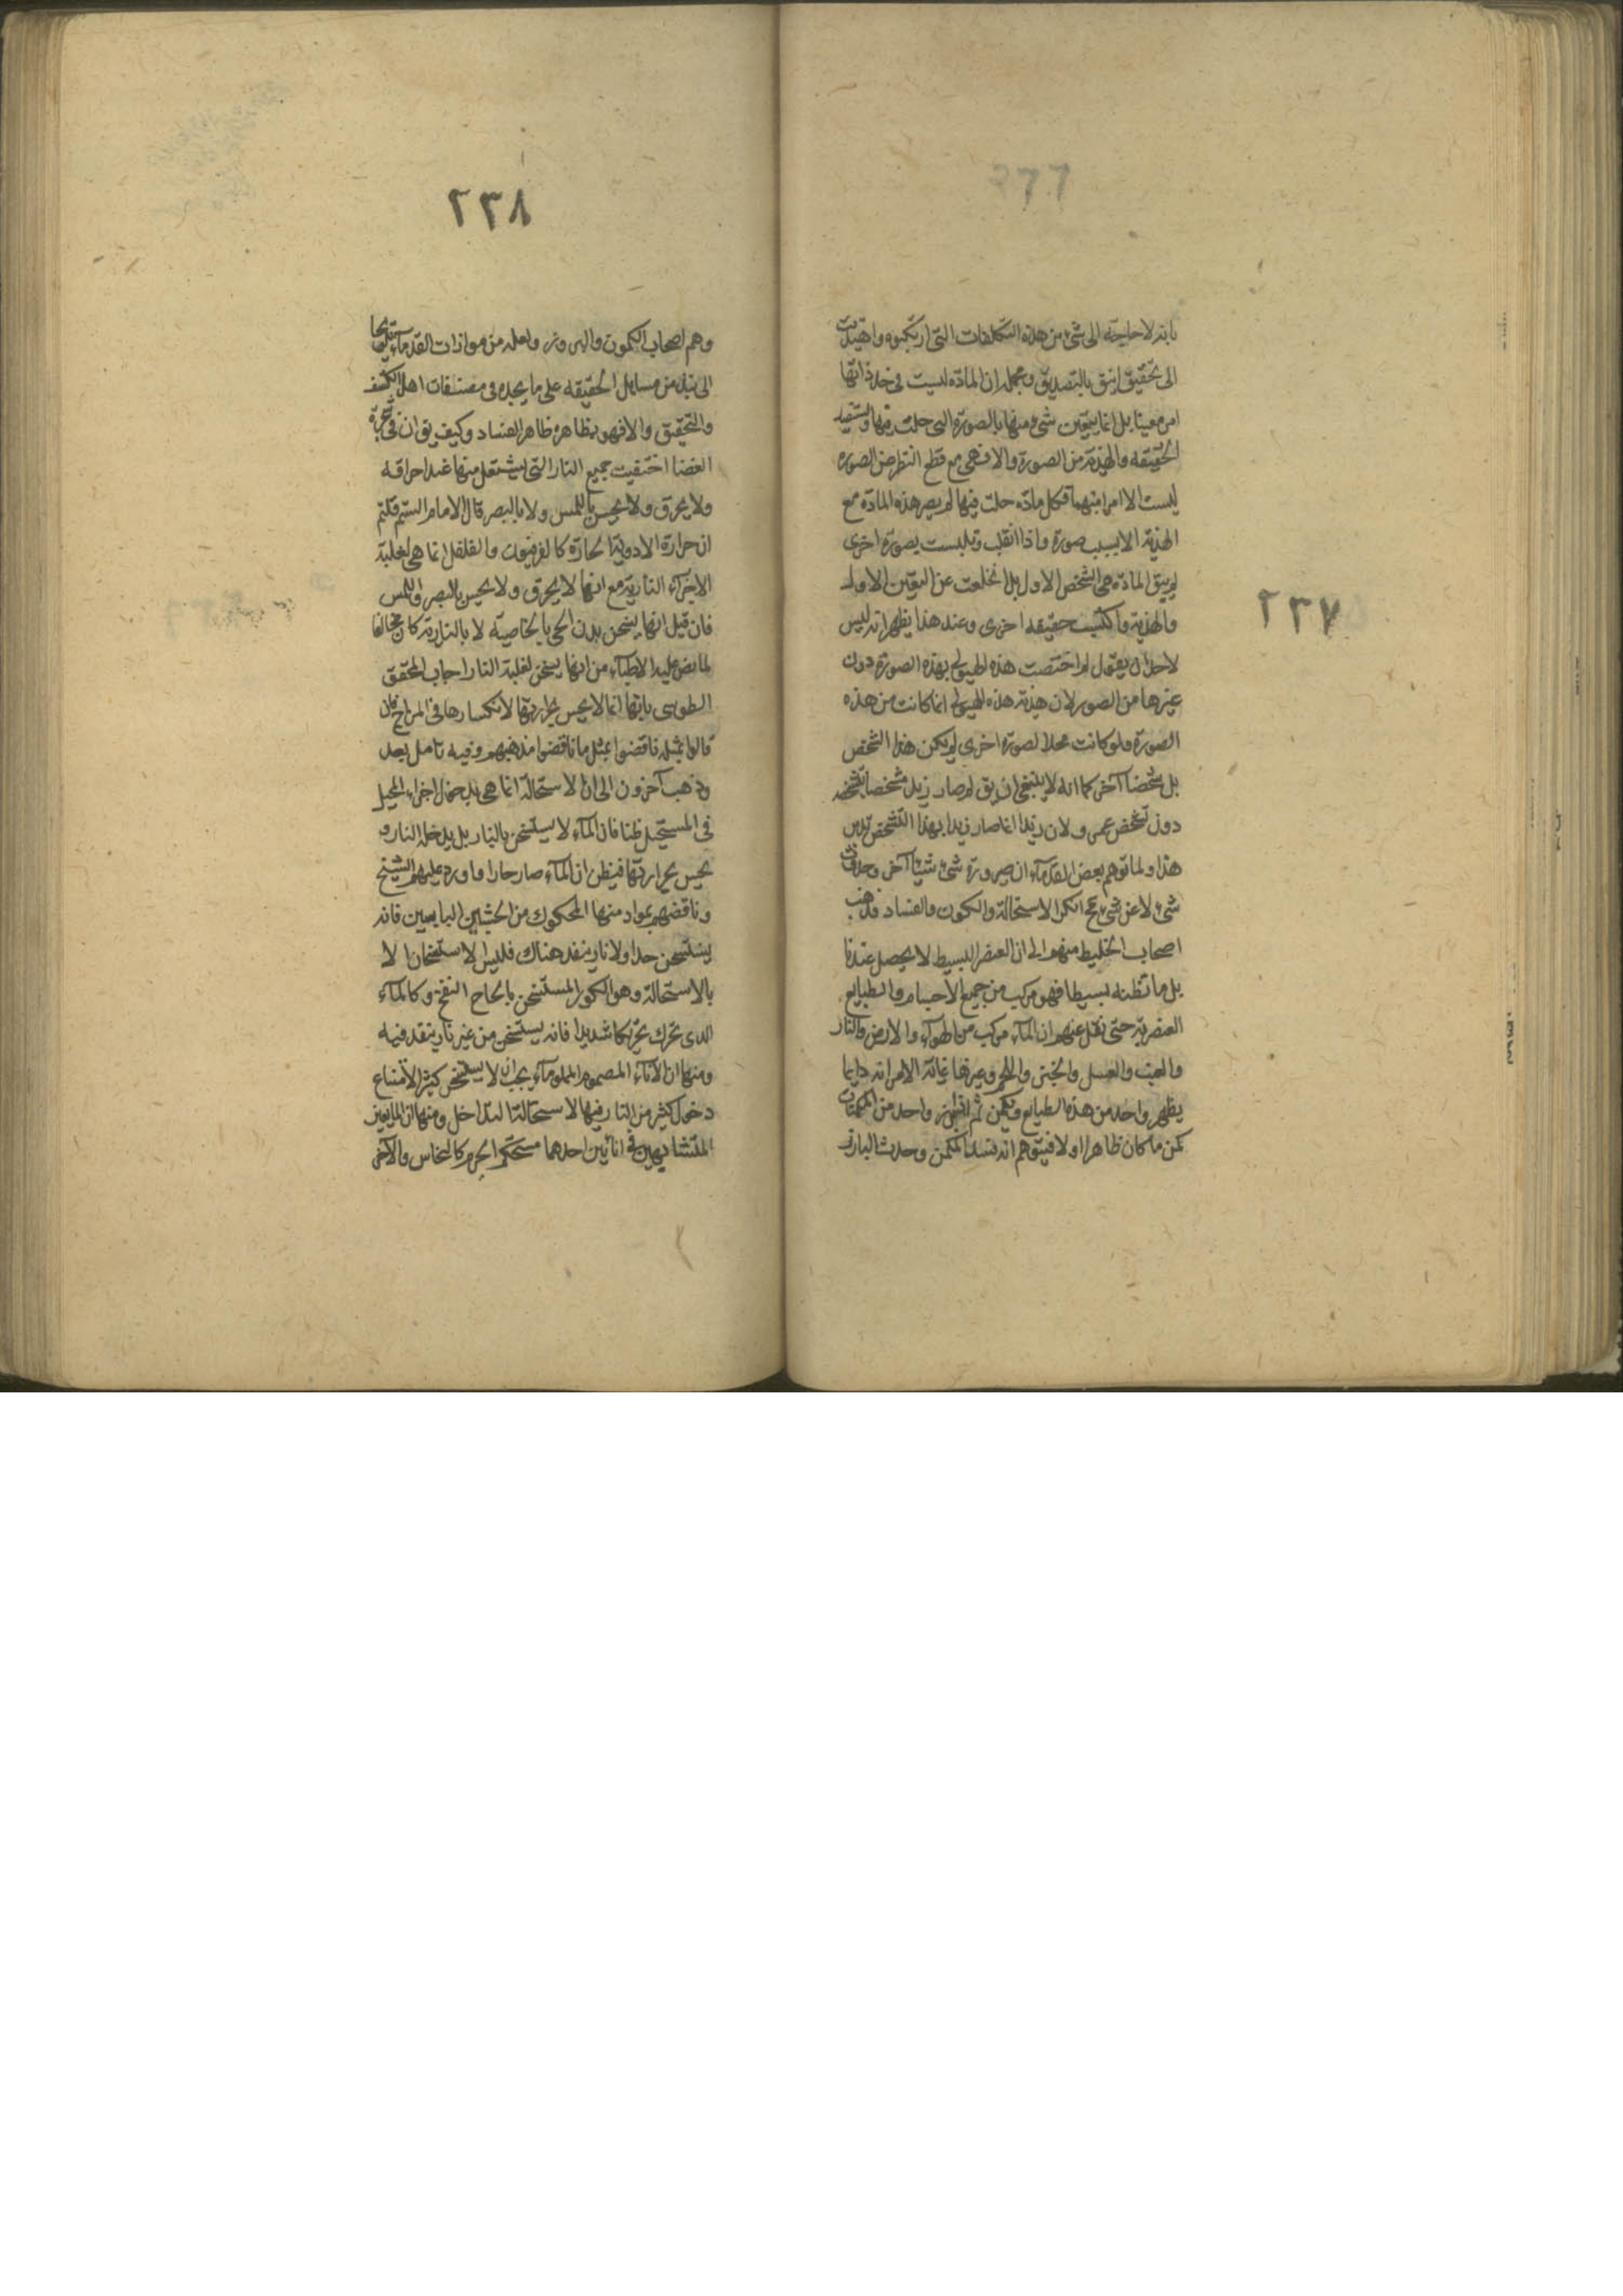 ٢٣٧
بانه لا حاجة الى شئ من هذه التكلفات التى ارتكبوه واهتديت
الى تحقيق انيق بالتصديق ومجمله ان المادة ليست فى حد ذاتها
امر معينا بل انما يتعين شئ منها بالصورة التى حلت فيها وتستفيد
الحقيقه والهذية من الصورة والا فهى مع قطع النظر عن الصوره
ليست الا امرا منهما فكل ماده حلت فيها لم يصر هذه المادة مع
الهذية الا بسبب صورة واذا انقلب وتلبست بصورة اخرى
لم يبق المادة هى الشخص الاول بل انخلعت عن التعين الاول
والهذية واكتسبت حقيقه اخرى وعند هذا يظهر انه ليس
لاحد ان يقول لم اختصت هذه الهيولى بهذه الصورة دون
غيرها من الصور لان هذية هذه الهيولى انما كانت من هذه
الصورة ولو كانت محلا لصورة اخرى لم يكن هذا الشخص
بل شخصا آخر كما انه لا ينبغى ان يق لم صار زيد مشخصا بتشخصه
دون تشخص عمرو لان زيدا انما صار زيدا بهذا التشخص تدبر
هذا ولما توهم بعض القدمآء ان صيرورة شئ شيئا آخر وحدوث
شئ لا عن شئ مح انكر الاستحالة والكون والفساد فذهب
اصحاب الخليط منهم الى ان العنصر البسيط لا يحصل عندنا
بل ما نظنه بسيطا فهو مركب من جميع الاجسام والطبايع
العنصرية حتى نقل عنهم ان المآء مركب من الهوآء والارض والنار
والعنب والعسل والخبز واللحم وغيرها غاية الامر انه دايما
يظهر واحد من هذه الطبايع ويكمن ثم اذا برز واحد من المكمنات
كمن ما كان ظاهرا اولا فيتوهم انه فسد المكمن وحدث البارز
٢٣٨
وهم اصحاب الكمون والبروز ولعله من موازات القدمآء تلويحا
الى نبذ من مسايل الحقيقه على ما يجده فى مصنفات اهل الكشف
والتحقيق والا فهو بظاهره ظاهر الفساد وكيف يق ان فى شجرة
الغضا اختفيت جميع النار التى يشتعل منها عند احراقه
ولا يحرق ولا يحس باللمس ولا بالبصر قال الامام الستم قلتم
ان حرارة الادوية الحارة كالفرفيون والفلفل انما هى لغلبة
الاجزآء النارية مع انها لا يحرق ولا يحس بالبصر واللمس
فان قيل انها يسخن بدن الحى بالخاصية لا بالنارية كان مخالفا
لما نص عليه الاطبآء من انها يسخن لغلبة النار اجاب المحقق
الطوسى بانها انما لا يحس بحرارتها لانكسارها فى المزاج فان
قالوا بمثله ناقضوا بمثل ما ناقضوا مذهبهم وفيه تامل بعد
وذهب آخرون الى ان الاستحالة انما هى بدخول اجزاء المحيل
فى المستحيل ظنا فان المآء لا يستسخن بالنار بل يدخله النار و
يحس بحرارتها فيظن ان المآء صار حارا واورد عليهم الشيخ
وناقضهم بمواد منها المحكوك من الخشبين اليابسين فانه
يستسخن جدا ولا نار ينفد هناك فليس الاستسخان الا
بالاستحالة وهو الكور المستسخن بالحاح النفخ وكالمآء
الذى تحرك تحركا شديدا فانه يستسخن من غير نار ينفد فيه
ومنها ان الانآء المصموم المملو مآء يجب ان لا يستسخن كثيرا لامتناع
دخول كثير من النار فيها لاستحالة التداخل ومنها ان المايعين
المتشابهين فى انائين احدهما مستحكم الجرم كالنحاس والآخر